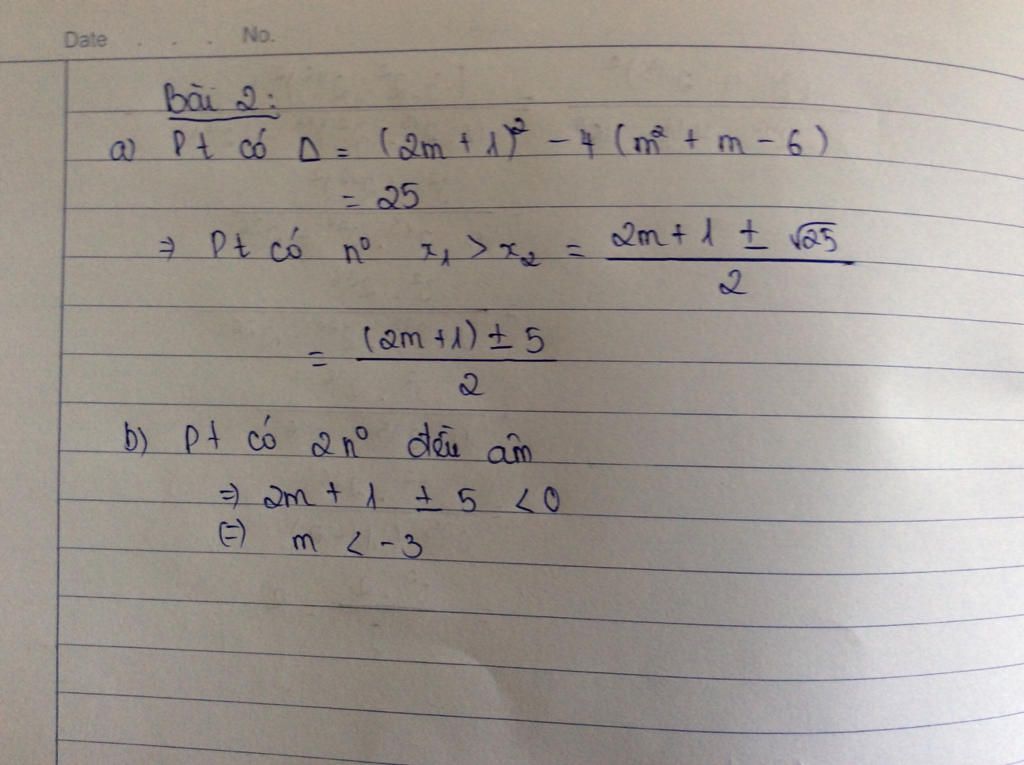 Date . . . No.
Bài 2:
a) Pt có Δ = (2m + 1)² - 4 (m² + m - 6)
= 25
⇒ Pt có nº x₁ > x₂ = \frac{2m + 1 ± √25}{2}
= \frac{(2m + 1) ± 5}{2}
b) Pt có 2 nº đều âm
⇒ 2m + 1 ± 5 < 0
(=) m < -3